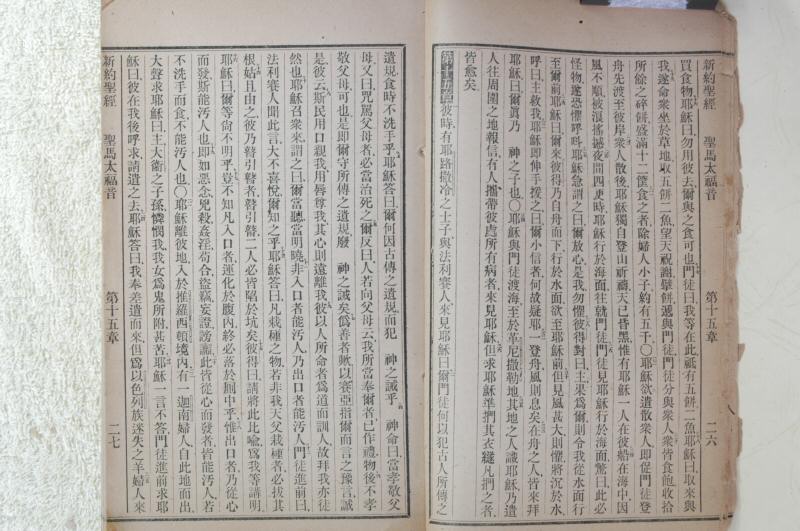 新約聖經　聖馬太福音　第十五章　二六
買食物、耶穌曰、勿用彼去、爾與之食可也、門徒曰、我等在此祇有五餅二魚、耶穌曰、取來與
我、遂命衆坐於草地、取五餅二魚、望天祝謝、擘餅遞與門徒、門徒分與衆人、衆皆食飽、收拾
所餘之碎餅、盛滿十二筐、食之者、除婦人小子、約有五千、〇耶穌欲遣散衆人、卽促門徒登
舟、先渡至彼岸、衆人散後、耶穌獨自登山祈禱、天已昏黑、惟有耶穌一人在彼、船在海中、因
風不順、被浪搖撼、夜間四更時、耶穌行於海面、往就門徒、門徒見耶穌行於海面、驚曰、此必
怪物、遂恐懼呼呌、耶穌急謂之曰、爾放心、是我、勿懼、彼得對曰、主、果爲爾、則令我從水面行
至爾前、耶穌曰、來、彼得乃自舟而下、行於水面、欲至耶穌前、但見風甚大則懼、將沉於水、
呼曰、主救我、耶穌卽伸手援之、曰、爾小信者、何故疑耶、一登舟、風則息矣、在舟之人、皆來拜
耶穌曰、爾眞乃　神之子也、〇耶穌與門徒渡海、至於革尼撒勒地、其地之人識耶穌、乃遣
人往周圍之地報信、有人攜帶彼處所有病者、來見耶穌、但求耶穌准捫其衣繸、凡捫之者、
皆愈矣、
第十五章　彼時、有耶路撒冷之士子與法利賽人、來見耶穌曰、爾門徒何以犯古人所傳之
遺規、食時不洗手乎、耶穌答曰、爾何因古傳之遺規而犯　神之誡乎、　神命曰、當孝敬父
母、又曰、咒罵父母者、必當治死之、爾反曰、人若向父母云、我所當奉爾者、已作禮物、後不孝
敬父母可也、是卽爾守所傳之遺規、廢　神之誡矣、僞善者歟、以賽亞指爾而言之豫言、誠
是、彼云、斯民用口親我、用唇尊我、其心則遠離我、彼以人所命者爲道而訓人、故拜我亦徒
然也、耶穌召衆來、謂之曰、爾當聽、當明曉、非入口者能汚人、乃出口者能汚人、門徒進前曰、
法利賽人聞此言、大不喜悅、爾知之乎、耶穌答曰、凡栽種之物、若非我天父栽種者、必拔其
根、姑且由之、彼乃瞽引瞽者、瞽引瞽、二人必皆陷於坑矣、彼得曰、請將此比喩、爲我等講明、
耶穌曰、爾等尙不明乎、豈不知凡入口者、運化於腹內、終必落於厠中乎、惟出口者、乃從心
而發、斯能汚人也、卽如惡念、兇殺、姦淫、苟合、盜竊、妄證、謗讟、此皆從心而發者、皆能汚人、若
不洗手而食、不能汚人也、〇耶穌離彼地、入於推羅西頓境內、有一迦南婦人、自此地而出、
大聲求耶穌曰、主、大衛之子孫、憐憫我、我女爲鬼所附甚苦、耶穌一言不答、門徒進前求耶
穌曰、彼在我後呼求、請遣之去、耶穌答曰、我奉差遣而來、但爲以色列族迷失之羊、婦人來
新約聖經　聖馬太福音　第十五章　二七